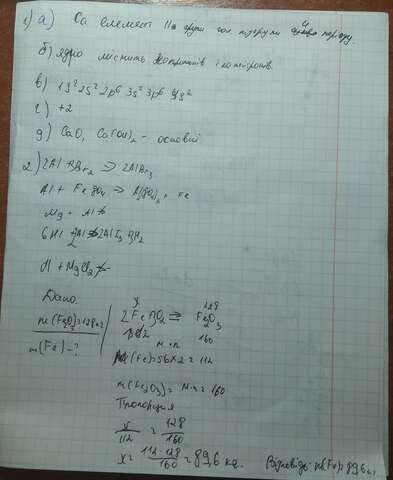 1) а) Ca елемент IIа групи гол. підгрупи 4 періоду.
б) Ядро містить протонів і нейтронів.
в) 1s² 2s² 2p⁶ 3s² 3p⁶ 4s²
г) +2
д) CaO, Ca(OH)₂ - основні
2) 2Al + 3Br₂ ⇒ 2AlBr₃
Al + FeSO₄ ⇒ Al₂(SO₄)₃ + Fe
Mg + Al
6HI + 2Al ⇒ 2AlI₃ 3H₂
Al + MgCl₂
Дано:
m(Fe₂O₃)=128кг
m(Fe) - ?
x 128
2Fe O₂ ⇒ Fe₂O₃
112 160
M·n
M(Fe)=56×2=112
m(Fe₂O₃)= M·n =160
Пропорция
x/112 = 128/160
x= 112·128/160 = 89,6 кг. Відповідь: m(Fe)=89,6 кг.